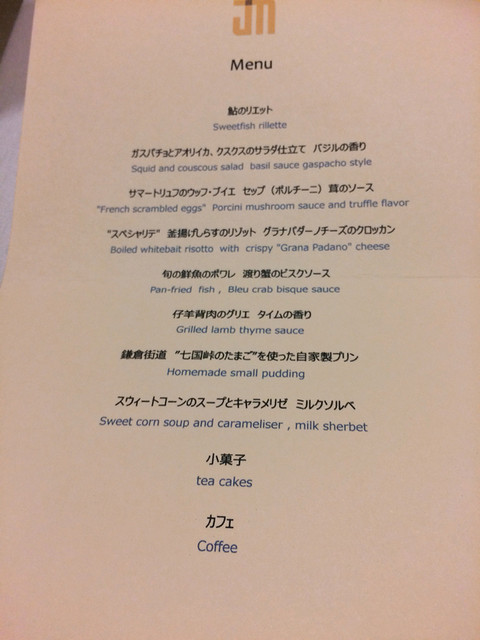 Menu
鮎のリエット
Sweetfish rillette
ガスパチョとアオリイカ、クスクスのサラダ仕立て バジルの香り
Squid and couscous salad basil sauce gaspacho style
サマートリュフのウッフ・ブイエ セップ（ポルチーニ）茸のソース
"French scrambled eggs" Porcini mushroom sauce and truffle flavor
"スペシャリテ" 釜揚げしらすのリゾット グラナパダーノチーズのクロッカン
Boiled whitebait risotto with crispy "Grana Padano" cheese
旬の鮮魚のポワレ 渡り蟹のビスクソース
Pan-fried fish , Bleu crab bisque sauce
仔羊背肉のグリエ タイムの香り
Grilled lamb thyme sauce
鎌倉街道 "七国峠のたまご"を使った自家製プリン
Homemade small pudding
スウィートコーンのスープとキャラメリゼ ミルクソルベ
Sweet corn soup and carameliser , milk sherbet
小菓子
tea cakes
カフェ
Coffee